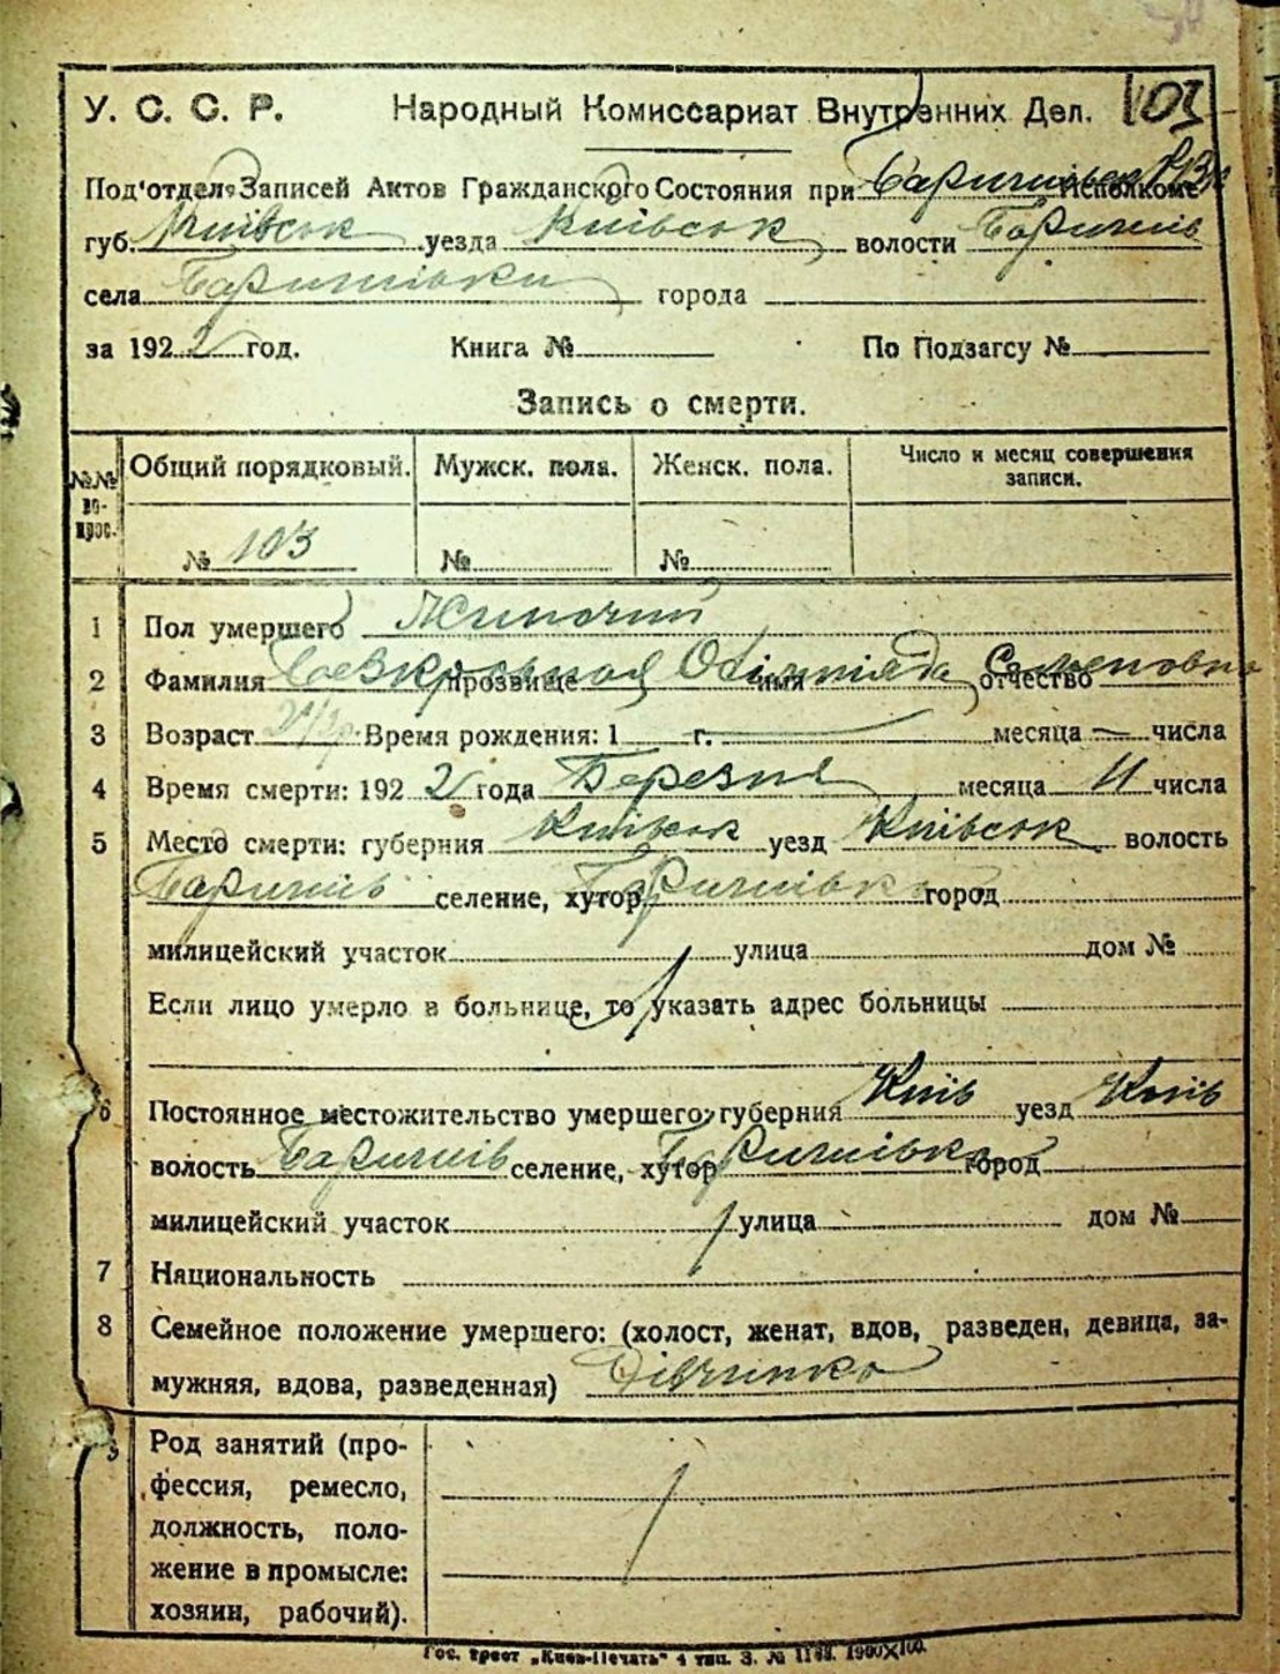 103
У. С. С. Р. Народный Комиссариат Внутренних Дел.
Под'отдел Записей Актов Гражданского Состояния при Исполкоме
губ. Київськ уезда Київськ волости Баришів
села Баришівки города
за 1922 год. Книга № По Подзагсу №
Запись о смерти.
№№ во-прос. Общий порядковый. Мужск. пола. Женск. пола. Число и месяц совершения записи.
№ 103 № №
1 Пол умершего Жиночий
2 Фамилия прозвище имя отчество Семеновна
3 Возраст Время рождения: 1 г. месяца — числа
4 Время смерти: 1922 года Березня месяца 11 числа
5 Место смерти: губерния Київськ уезд Київськ волость
Баришів селение, хутор Баришівка город
милицейский участок улица дом №
Если лицо умерло в больнице, то указать адрес больницы
6 Постоянное местожительство умершего: губерния Київ уезд Київ
волость Баришів селение, хутор Баришівка город
милицейский участок улица дом №
7 Национальность
8 Семейное положение умершего: (холост, женат, вдов, разведен, девица, за-
мужняя, вдова, разведенная) Дівчинка
9 Род занятий (про-
фессия, ремесло,
должность, поло-
жение в промысле:
хозяин, рабочий).
Гос. трест „Киев-Печать“ 4 тип. З. №